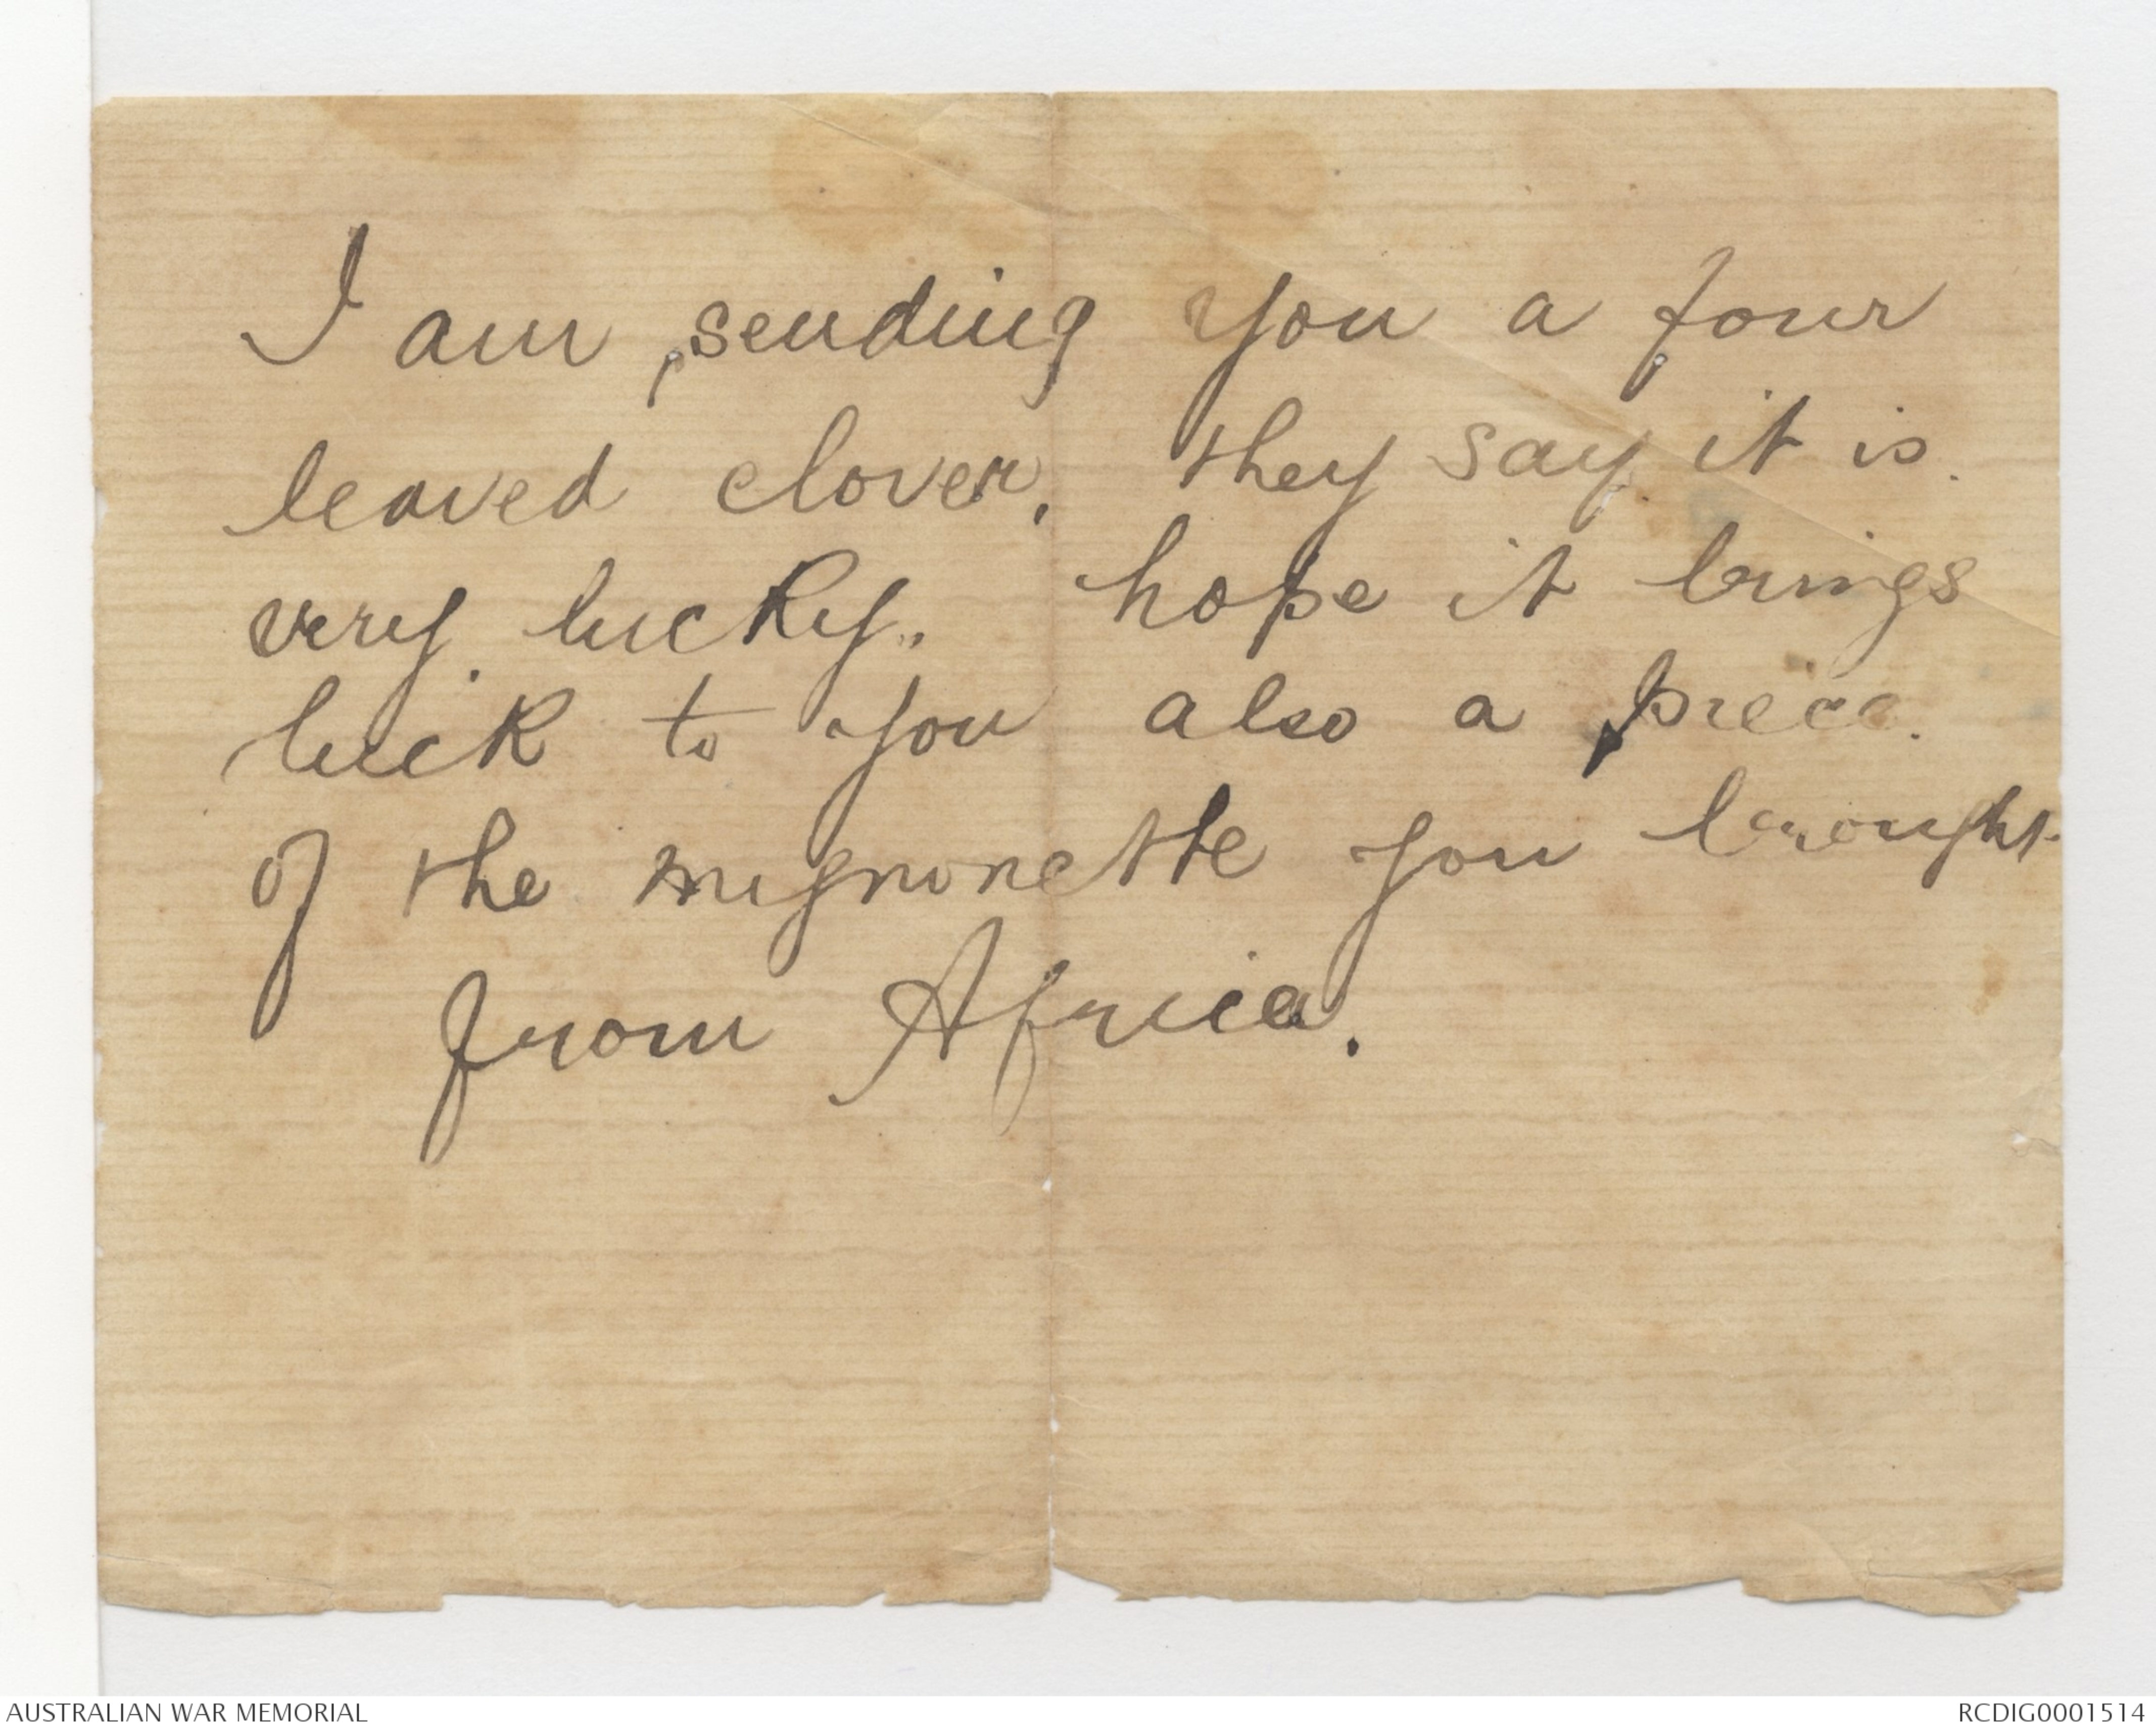 I am sending you a four
leaved clover, they say it is
very lucky. hope it brings
luck to you also a piece
of the mignonette you brought
from Africa.
AUSTRALIAN WAR MEMORIAL
RCDIG0001514